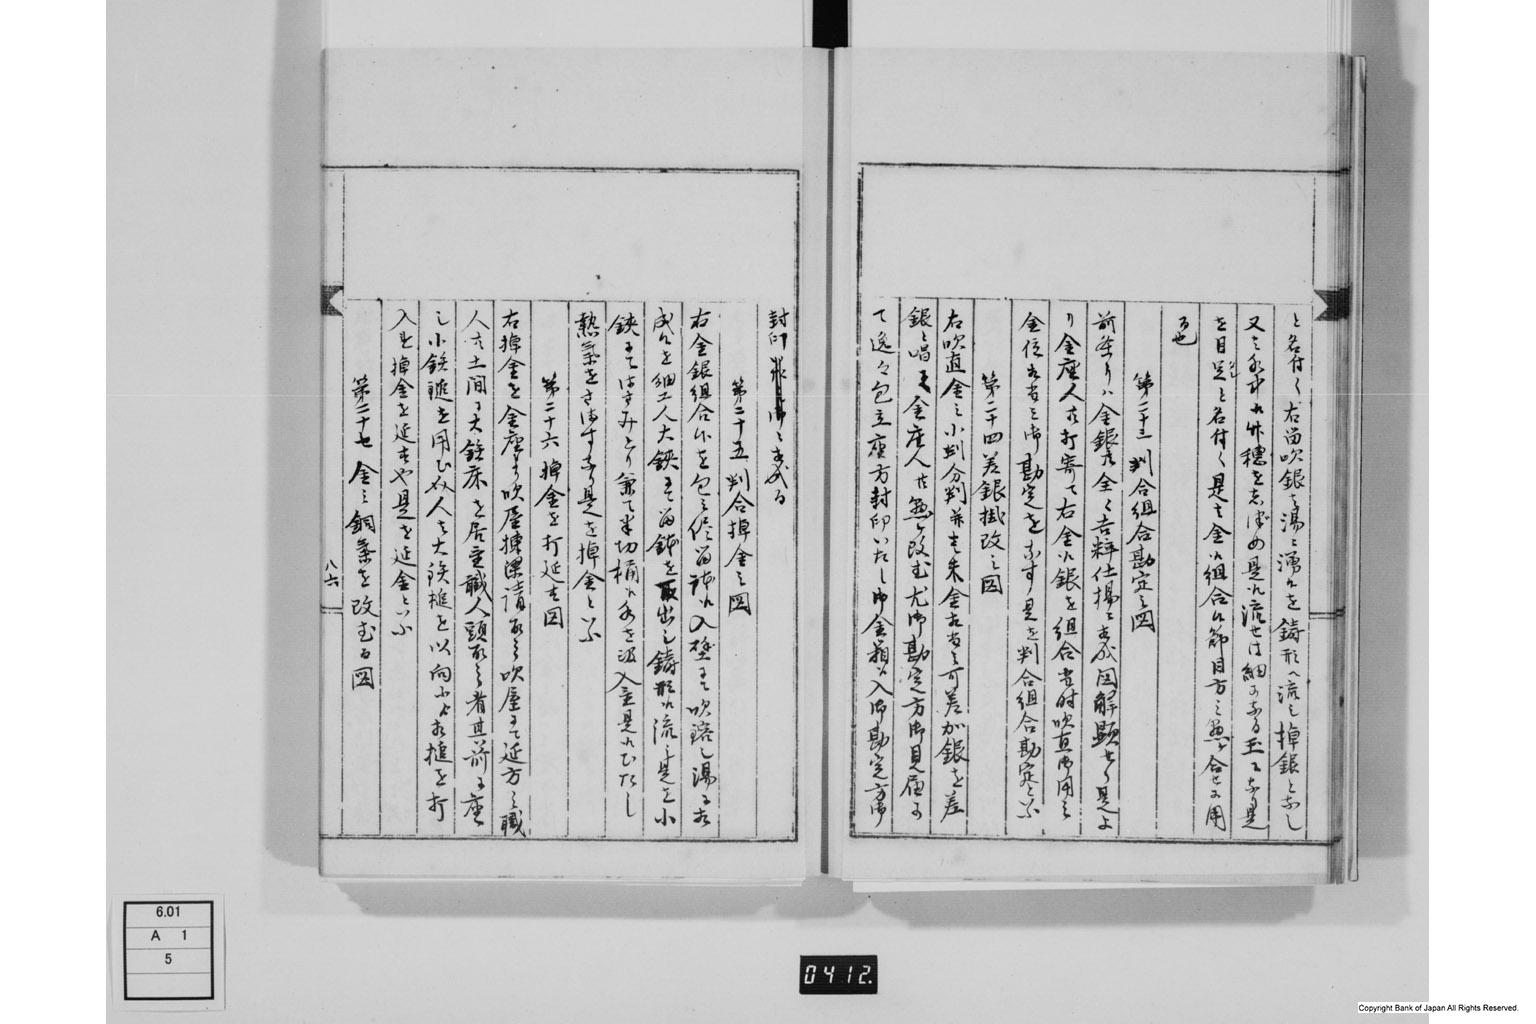 と名付く右留吹銀を湯に涌れを鋳形へ流し棹銀となし
又水中れ竹穂をちぢめ是れ流せは細なる玉になる是
を目足と名付く是を金れ組合れ節目方懸ケ合せに用
る也
第二十三 判合組合勘定之図
前条りハ金銀全く吉粋仕揚に相成図解顕せり是よ
り金座人打寄て右金れ銀を組合当時吹直御用之
金位相当之御勘定をなす是を判合組合勘定といふ
第二十四 差銀掛改之図
右吹直金之小判分判并朱金相当之可差加銀を差
銀と唱て金座人共懸ケ改む尤御勘定方御見届
て逸々包立座方封印いたし御金箱へ入御勘定方御
封印
第二十五 判合棹金之図
右金銀組合を包之侭留鉢れ入塩にて吹鎔し湯に相
成るを細工人大鋏にて留鉢を取出し鋳形れ流し是を小
鋏にてはさみとり兼て半切桶れ水を汲入置是れひたし
熱気をさます是を棹金といふ
第二十六 棹金を打延す図
右棹金を金座より吹屋棟梁請取吹屋にて延方之職
人共土間に大鉄床を居置職人頭取之者其前に座
し小鉄鎚を用ひ職人は大鉄槌を以向より相槌を打
入れ棹金を延すや是を延金といふ
第二十七 金之銅気を改むる図
八六
6.01
A 1
5
0412.
Copyright Bank of Japan All Rights Reserved.